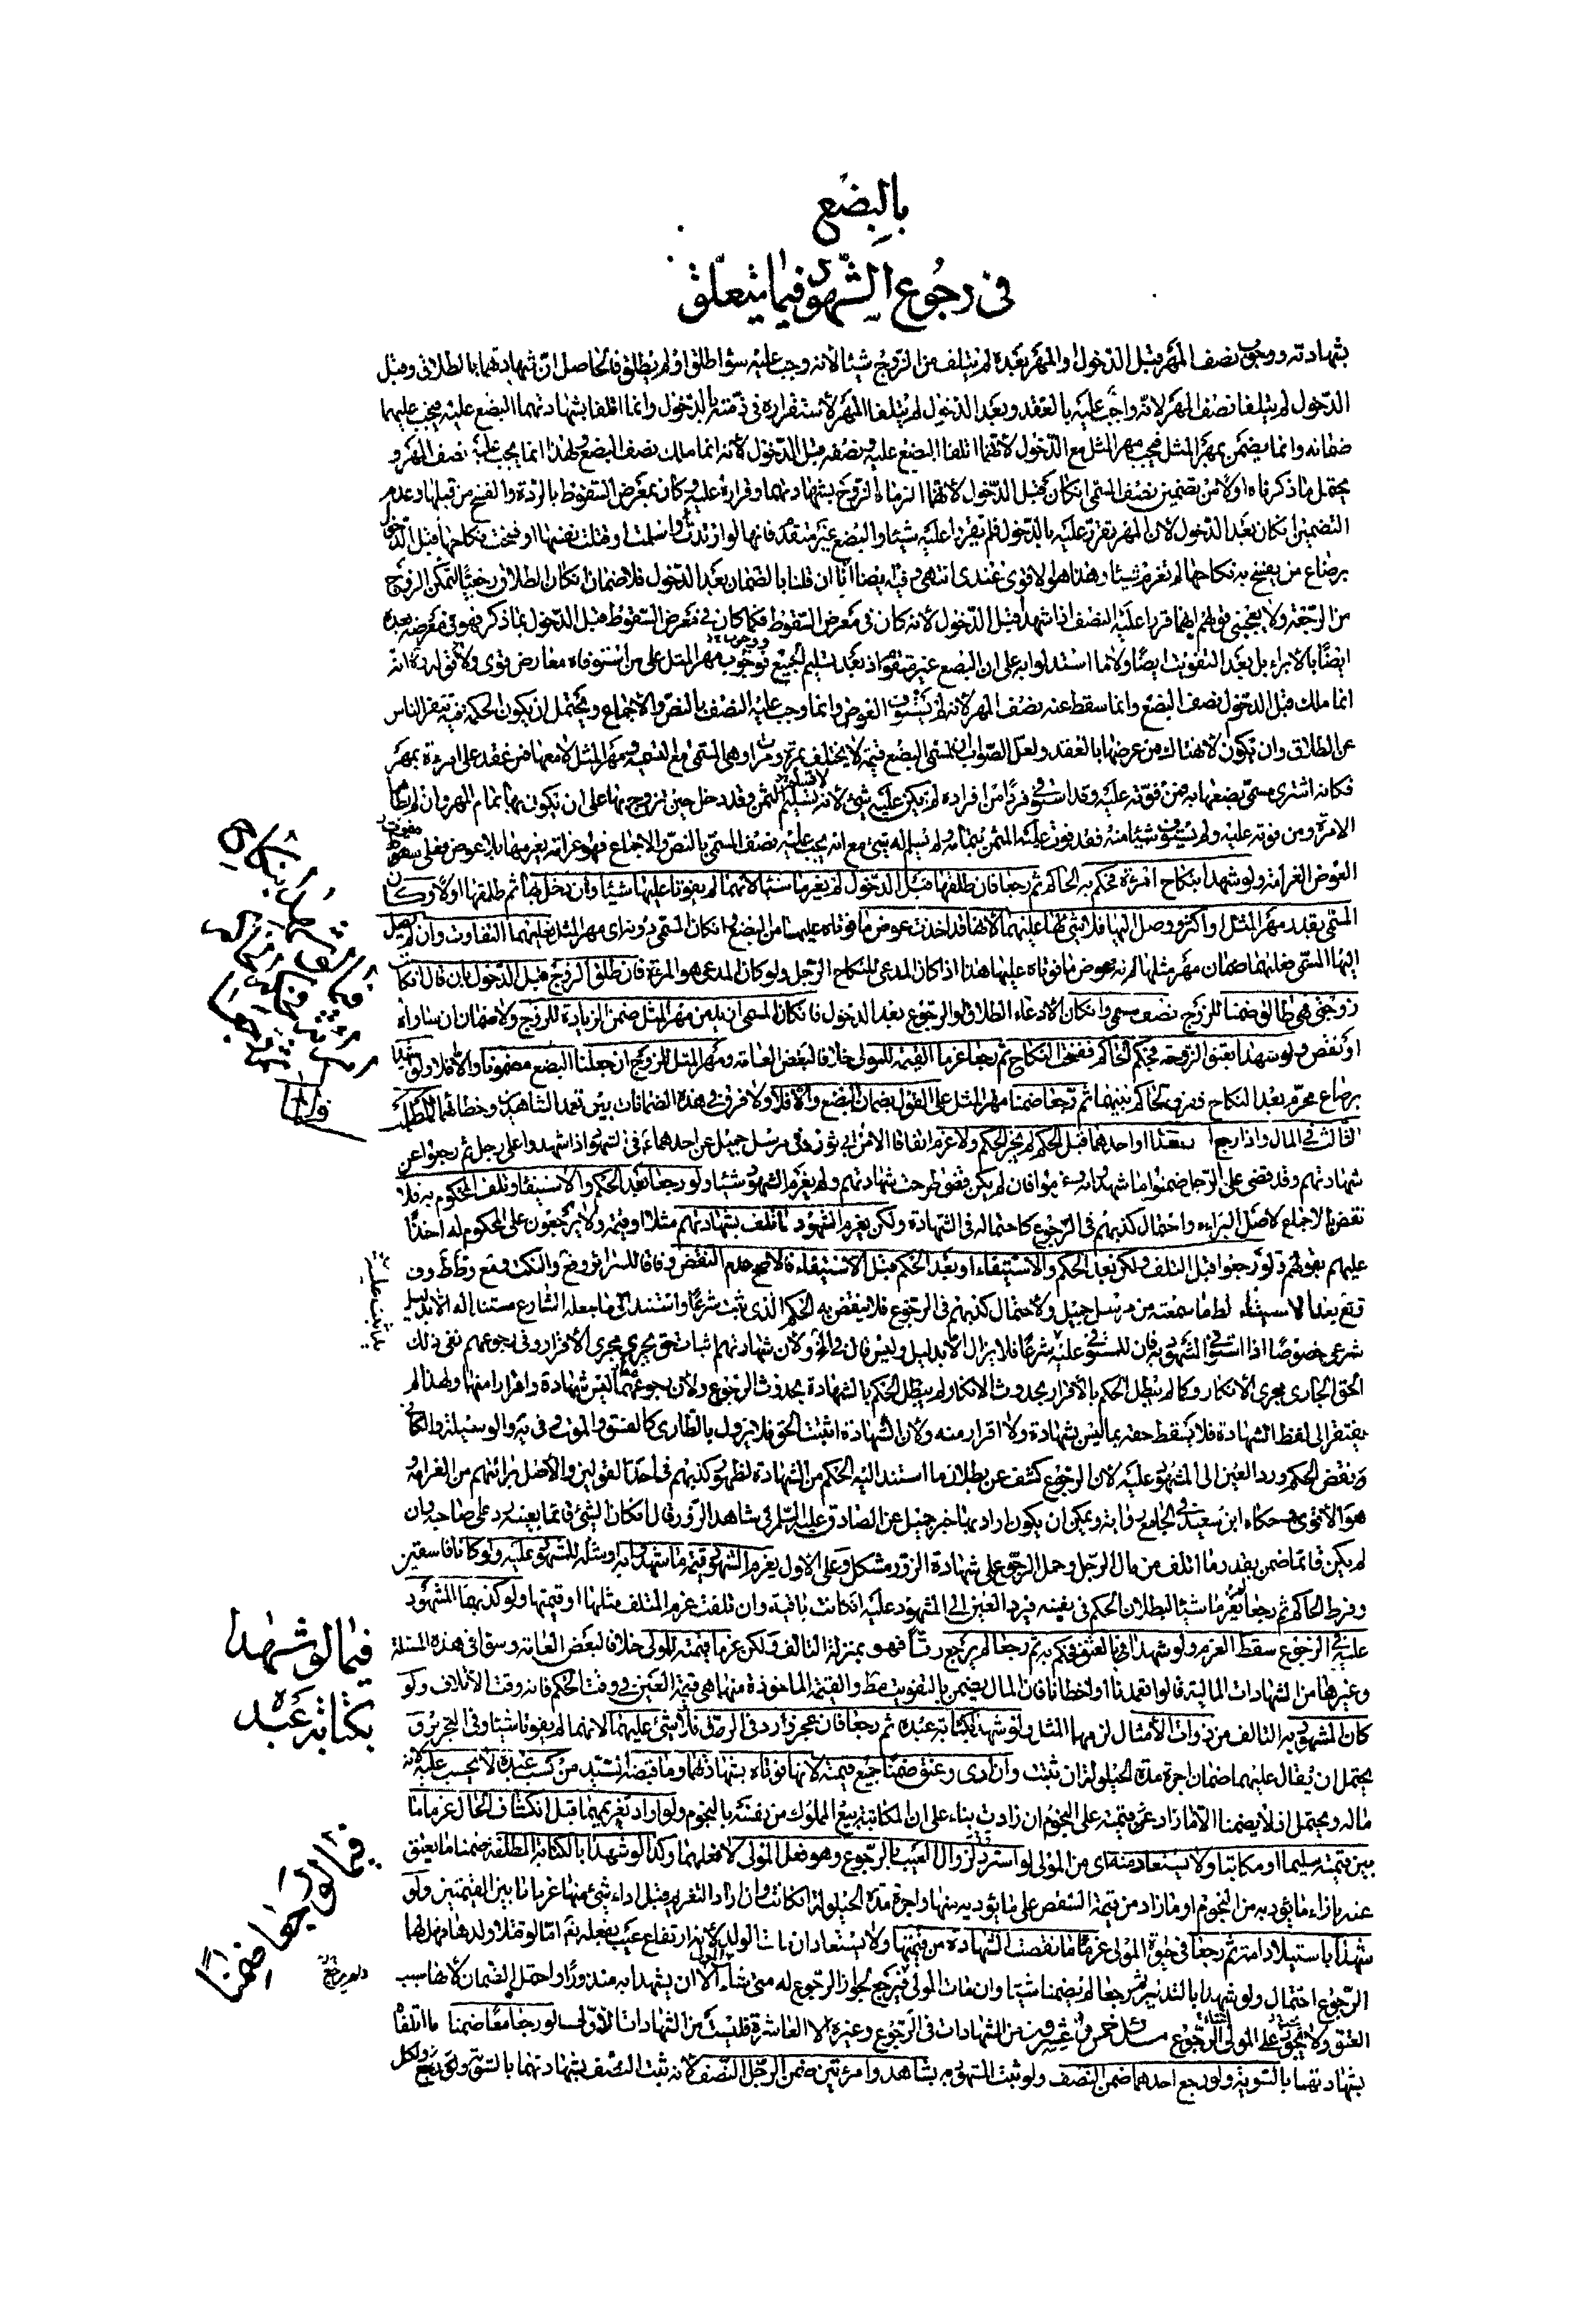 بالبضع
في رجوع الشهود فيما يتعلق
بشهادته ووجوب نصف المهر قبل الدخول والمهر بعده لم يتلف من الزوج شيئا لأنه وجب عليه سواء طلق او لم يطلق فالحاصل ان شهادتهما بالطلاق وقبل
الدخول لم يتلفا نصف المهر لانه واجب عليه بالعقد وبعد الدخول لم يتلفا المهر لاستقراره في ذمته بالدخول وانما اتلفا بشهادتهما البضع عليه فيجب عليهما
ضمانه وانما يضمن بمهر المثل فيجب مهر المثل مع الدخول لانهما اتلفا البضع عليه ونصفه قبل الدخول لانه انما ملك نصف البضع ولهذا انما يجب عليه نصف المهر و
يحتمل ما ذكرناه اولا من تضمين نصف المسمى ان كان قبل الدخول لانهما الزما الزوج بشهادتهما وقرراه عليه وكان بمعرض السقوط بالردة والفسخ من قبلها وعدم
التضمين ان كان بعد الدخول لان المهر تقرر عليه بالدخول فلم يقررا عليه شيئا والبضع غير متقوم فانها لو ارتدت او اسلمت او قتلت نفسها او فسخت نكاحها قبل الدخول
برضاع من ينفسخ به نكاحها لم تغرم شيئا وهذا هو الاقوى عندي انتهى وفيه ايضا انا ان قلنا بالضمان بعد الدخول فلا ضمان ان كان الطلاق رجعيا لتمكن الزوج
من الرجعة ولا يعجبني قولهم انهما قررا عليه النصف اذا شهدا قبل الدخول لانه كان في معرض السقوط فكما كان في معرض السقوط قبل الدخول بما ذكر فهو في معرضه بعده
ايضا بالابراء بل بعد التفويت ايضا ولا ما استدلوا به على ان البضع غير متقوم اذ بعد تسليم الجميع فوجوب مهر المثل على من استوفاه معارض قوي ولا قوله ره انه
انما ملك قبل الدخول نصف البضع وانما سقط عنه نصف المهر لانه لم يستوف العوض وانما وجب عليه النصف بالنص والاجماع ويحتمل ان يكون الحكمة فيه تنفير الناس
عن الطلاق وان تكون لانهتاك من عرضها بالعقد ولعل الصواب ان لمسمى البضع قيمة لا يختلف بمرة ومرات وهي المسمى مع التسمية ومهر المثل لا معها فمن عقد على امرءة بمهر
فكانه اشترى مسمى بضعها به فمن فوته عليه وقد استوفى فردا من افراده لم يكن عليه شيء لانه تسلم الثمن وقد دخل حين تزوج بها على ان يكون بها تمام المهر وان لم يطأها
الا مرة ومن فوته عليه ولم يستوف شيئا منه فقد فوت عليه الثمن بتمامه ولم يسلم له شيء مع انه يجب عليه نصف المسمى بالنص والاجماع فهو غرامة يغرمها بلا عوض فعلى مفوت
العوض الغرامة ولو شهدا بنكاح امرءة فحكم به الحاكم ثم رجعا فان طلقها قبل الدخول لم يغرما شيئا لانهما لم يفوتا عليها شيئا وان دخل بها ثم طلقها اولا وكان
المسمى بقدر مهر المثل او اكثر ووصل اليها فلا شيء لها عليهما لانها قد اخذت عوض ما فوتاه عليها من البضع وان كان المسمى دونه اي مهر المثل فعليهما التفاوت وان لم يصل
اليها المسمى فعليهما ضمان مهر مثلها لانه عوض ما فوتاه عليها هذا اذا كان المدعي للنكاح الرجل ولو كان المدعي هو المرءة فان طلق الزوج قبل الدخول بان قال ان كانت
زوجتي هي طالق ضمنا للزوج نصف مسمى وان كان الادعاء الطلاق والرجوع بعد الدخول فان كان المسمى ازيد من مهر المثل ضمن الزيادة للزوج ولا ضمان ان ساواه
او نقص ولو شهدا بعتق الزوجة فحكم الحاكم ففسخت النكاح ثم رجعا غرما القيمة للمولى خلافا لبعض العامة ومهر المثل للزوج ان جعلنا البضع مضمونا والا فلا ولو شهدا
برضاع محرم بعد النكاح ففرق الحاكم بينهما ثم رجعا ضمنا مهر المثل على القول بضمان البضع والا فلا ولا فرق في هذه الضمانات بين تعمد الشاهدين وخطائهما المطلب
الثالث في المال واذا رجعا او احدهما قبل الحكم لم يجز الحكم ولا غرم اتفاقا الا من ابي ثور وفي مرسل جميل عن احدهما ع في الشهود اذا شهدوا على رجل ثم رجعوا عن
شهادتهم وقد قضي على الرجل ضمنوا ما شهدوا به وغرموا فان لم يكن قضي طرحت شهادتهم ولم يغرم الشهود شيئا ولو رجعا بعد الحكم والاستيفاء وتلف المحكوم به فلا
نقض بالاجماع لاصل البراءة واحتمال كذبهم في الرجوع كاحتماله في الشهادة ولكن يغرم الشهود ما تلف بشهادتهم مثلا او قيمة ولا يرجعون على المحكوم له اخذا
عليهم بقولهم ولو رجعوا قبل التلف ولكن بعد الحكم والاستيفاء او بعد الحكم قبل الاستيفاء فالاصح عدم النقض وفاقا للسرائر والشرايع والنكت
بعد الاستيفاء لما سمعته من مرسل جميل ولاحتمال كذبهم في الرجوع فلا ينقض به الحكم الذي ثبت شرعا واستند الى ما جعله الشارع مستندا له الا بدليل
شرعي خصوصا اذا استوفى المشهود به فان المستوفى عليه شرعا فلا يزال الا بدليل وليس قال في الخ ولان شهادتهم اثبات حق يجري مجرى الاقرار وفي رجوعهم نفي ذلك
الحق الجاري مجرى الانكار وكما لم يبطل الحكم بالاقرار بحدوث الانكار لم يبطل الحكم بالشهادة بحدوث الرجوع ولان رجوعهما ليس شهادة واقرارا منها ولهذا لم
يفتقر الى لفظ الشهادة فلا يسقط حقه بما ليس بشهادة ولا اقرار منه ولان الشهادة اثبتت الحق فلا يزول بالطاري كالفسق والموت وفي ية والوسيلة والكافي
ونقض الحكم ورد العين الى المشهود عليه لان الرجوع كشف عن بطلان ما استند اليه الحكم من الشهادة لظهور كذبهم في احد القولين والاصل براءتهم من الغرامة و
هو الاقوى وحكاه ابن سعيد في الجامع رواية ويمكن ان يكون اراد بها خبر جميل عن الصادق عليه السلم في شاهد الزور قال ان كان الشيء قائما بعينه رد على صاحبه وان
لم يكن قائما ضمن بقدر ما اتلف من مال الرجل وحمل الرجوع على شهادة الزور مشكل وعلى الاول يغرم الشهود قيمة ما شهدوا به او مثله للمشهود عليه ولو كانا فاسقين
وفرط الحاكم ثم رجعا لم يغرما شيئا لبطلان الحكم في نفسه فيرد العين الى المشهود عليه ان كانت باقية وان تلفت غرم المتلف مثلها او قيمتها ولو كذبهما المشهود
عليه في الرجوع سقط الغرم ولو شهدا بالعتق فحكم به ثم رجعا لم يرجع رقا فهو بمنزلة التالف ولكن غرما قيمته للمولى خلافا لبعض العامة وسواء في هذه المسئلة
وغيرها من الشهادات المالية قالوا تعمدنا او اخطانا فان المال يضمن بالتفويت مط والقيمة الماخوذة منهما هي قيمة العين في وقت الحكم فانه وقت الاتلاف ولو
كان المشهود به التالف من ذوات الامثال لزمهما المثل ولو شهدا بكتابة عبده ثم رجعا فان عجز ورد في الرق فلا شيء عليهما لانهما لم يفوتا شيئا وفي التحرير
يحتمل ان يقال عليهما ضمان اجرة مدة الحيلولة ان ثبتت وان ادى وعتق ضمنا جميع قيمته لانهما فوتاه بشهادتهما وما قبضه السيد من كسب عبده لا يحسب عليه لانه
ماله ويحتمل ان لا يضمنا الا ما زاد من قيمته على النجوم ان زادت بناء على ان المكاتبة بيع المملوك من نفسه بالنجوم ولو اراد تغريمهما قبل انكشاف الحال غرما ما
بين قيمته سليما ومكاتبا ولا يستعاد منه اي من المولى لو استرد لزوال العيب بالرجوع وهو فعل المولى لا فعلهما وكذا لو شهدا بالكتابة المطلقة ضمنا ما يعتق
عنه بازاء ما يؤديه من النجوم او ما زاد من قيمة الشقص على ما يؤديه منها واجرة مدة الحيلولة ان كانت وان اراد التغريم قبل اداء شيء منها غرما ما بين القيمتين ولو
شهدا باستيلاد امته ثم رجعا في حيوة المولى غرما ما نقصت الشهادة من قيمتها ولا يستعاد ان مات الولد لانه ارتفاع عيب بفعله نعم اما لو قتلا ولدها فهل لهما
الرجوع احتمال ولو شهدا بالتدبير ثم رجعا لم يضمنا شيئا وان مات المولى لم يرجع لجواز الرجوع له متى شاء الا ان يشهدا به منذورا واحتمل الضمان لانهما سبب
العتق ولا يجب على المولى انشاء الرجوع مسائل خمس وعشرون من الشهادات في الرجوع وغيره الا العاشرة فليست من الشهادات الاولى لو رجعا معا ضمنا ما اتلفا
بشهادتهما بالسوية ولو رجع احدهما ضمن النصف ولو ثبت المشهود به بشاهد وامرءتين ضمن الرجل النصف لانه ثبت النصف بشهادتهما بالسوية ولو رجع ولكل
فيما لو شهدا بنكاح
فيما لو شهدا
بكتابة عبده
فيما لو رجعا ضمنا